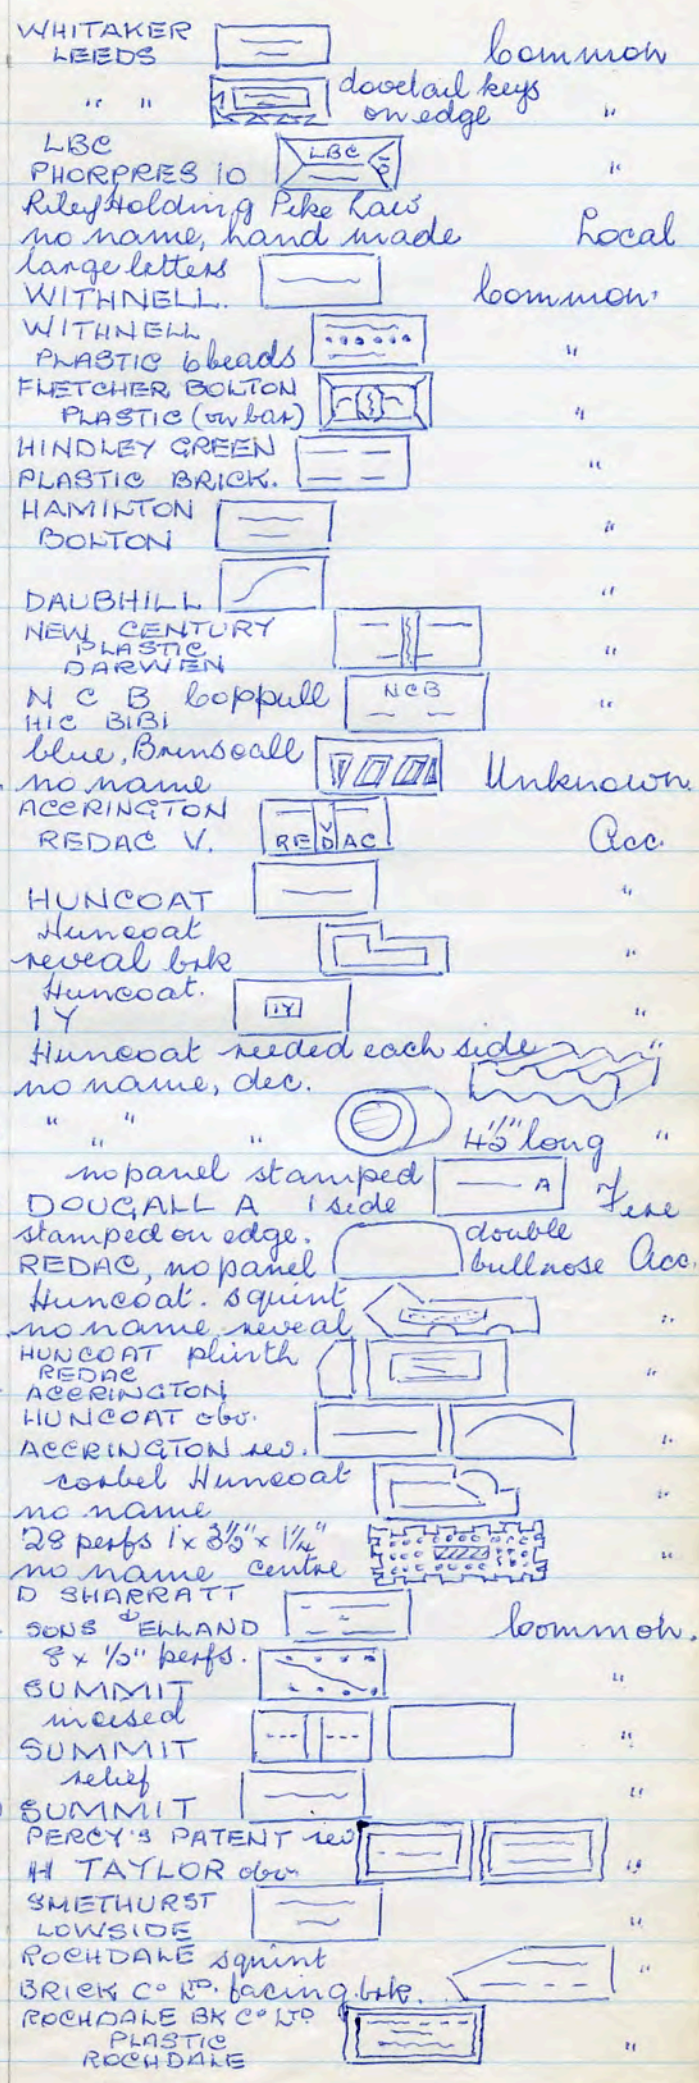 WHITAKER
LEEDS Common
" " dovetail keys
on edge "
LBC LBC
PHORPRES 10 "
Riley Holding Pike Law
no name, hand made Local
large letters
WITHNELL. Common.
WITHNELL
PLASTIC 6 beads "
FLETCHER BOLTON
PLASTIC (on bar) "
HINDLEY GREEN
PLASTIC BRICK. "
HAMILTON
BOLTON "
DAUBHILL "
NEW CENTURY
PLASTIC
DARWEN "
N C B Coppull NCB
HIC BIBI "
blue, Brinscall
no name Unknown
ACCRINGTON
REDAC V. REDAC V Acc.
HUNCOAT "
Huncoat
reveal brk "
Huncoat.
1Y 1Y "
Huncoat reeded each side "
no name, dec.
" " " 4½" long "
no panel stamped
DOUGALL A 1 side A Fire
stamped on edge. double
REDAC, no panel bullnose Acc.
Huncoat. squint
no name reveal "
HUNCOAT plinth
REDAC
ACCRINGTON "
HUNCOAT obv.
ACCRINGTON rev. "
corbel Huncoat
no name "
28 perfs 1 x 3½" x 1¼"
no name centre "
D SHARRATT
SONS & ELLAND Common.
8 x ½" perfs.
SUMMIT "
incised
SUMMIT "
relief
SUMMIT "
PERCY'S PATENT rev
H TAYLOR obv "
SMETHURST
LOWSIDE "
ROCHDALE squint
BRICK Co LTD. facing brk. "
ROCHDALE BK Co LTD
PLASTIC
ROCHDALE "